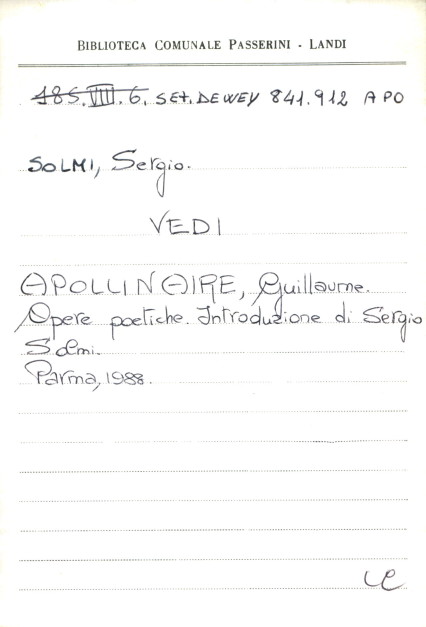 BIBLIOTECA COMUNALE PASSERINI - LANDI
185.VIII.6. SET. DEWEY 841.912 APO
SOLMI, Sergio.
VEDI
APOLLINAIRE, Guillaume.
Opere poetiche. Introduzione di Sergio
Solmi.
Parma, 1988.